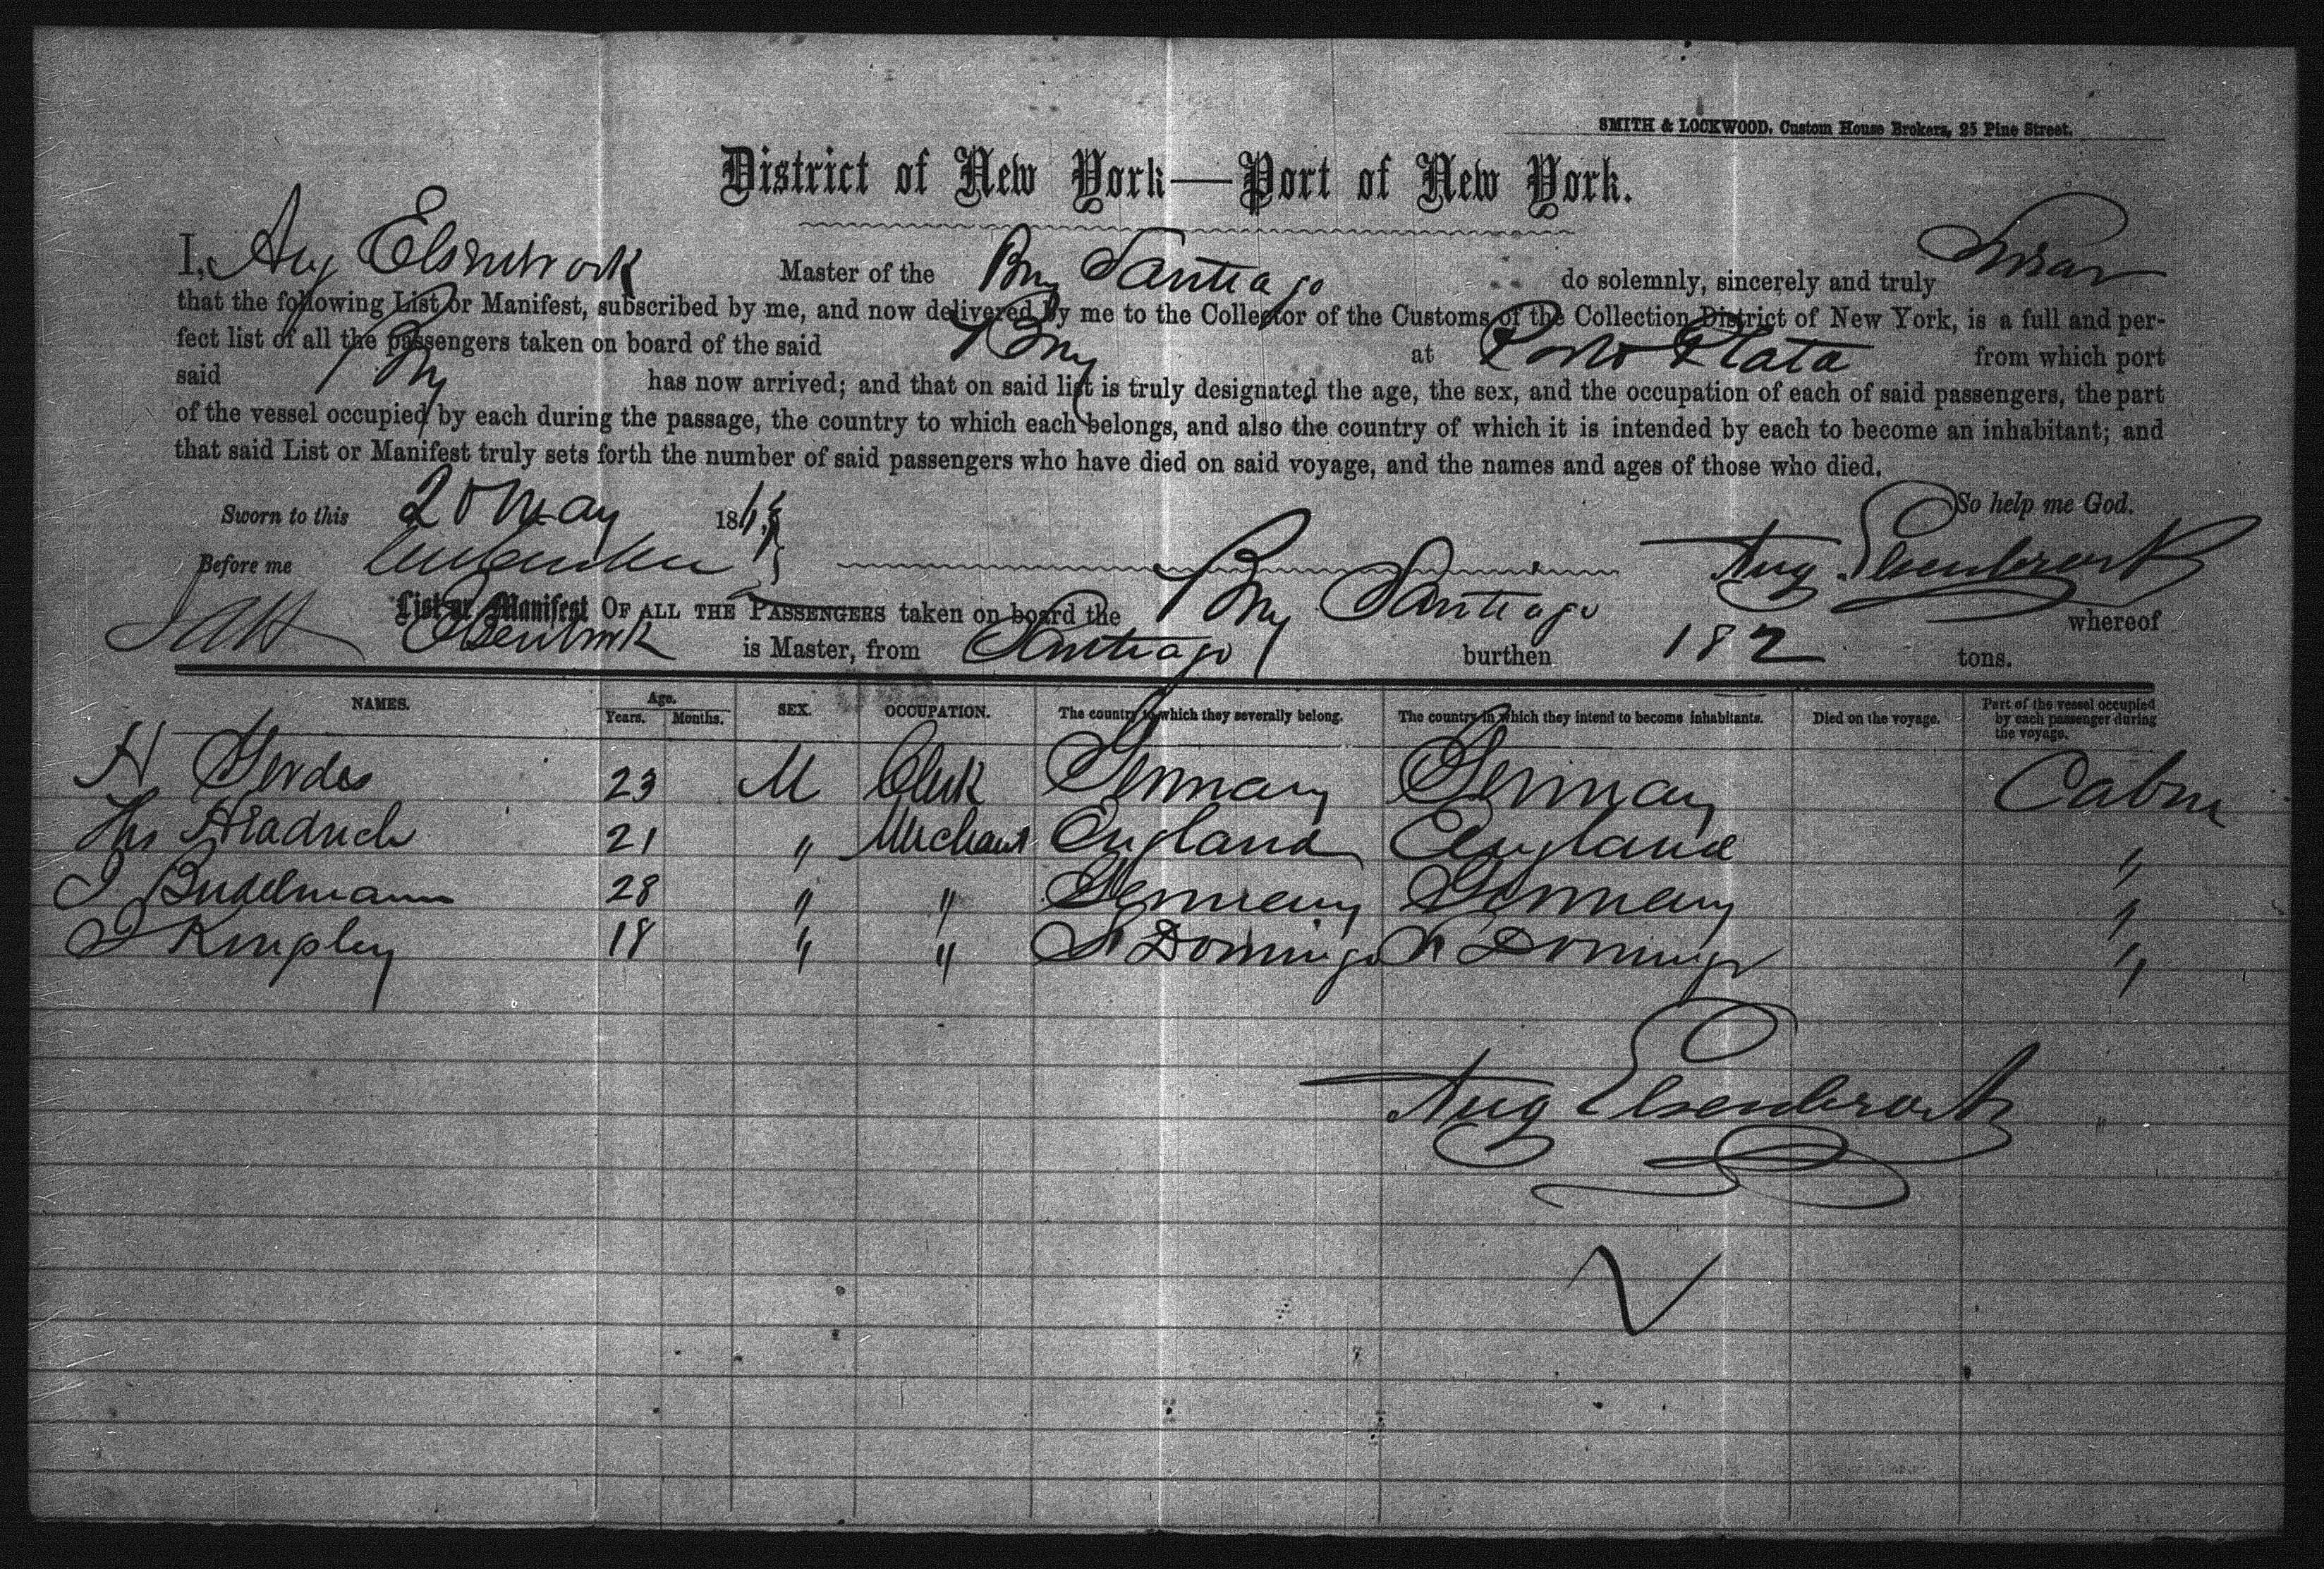 SMITH & LOCKWOOD, Custom House Brokers, 25 Pine Street.
District of New York—Port of New York.
I, Aug Elsenbrock Master of the Brig Santiago do solemnly, sincerely and truly Swear
that the following List or Manifest, subscribed by me, and now delivered by me to the Collector of the Customs of the Collection District of New York, is a full and per-
fect list of all the passengers taken on board of the said Brig at Porto Plata from which port
said Brig has now arrived; and that on said list is truly designated the age, the sex, and the occupation of each of said passengers, the part
of the vessel occupied by each during the passage, the country to which each belongs, and also the country of which it is intended by each to become an inhabitant; and
that said List or Manifest truly sets forth the number of said passengers who have died on said voyage, and the names and ages of those who died.
So help me God.
Sworn to this 20 May 186
Before me Aug Elsenbrock
List or Manifest OF ALL THE PASSENGERS taken on board the Brig Santiago whereof
Elsenbrock is Master, from Santiago burthen 182 tons.
NAMES. Age. Years. Months. SEX. OCCUPATION. The country to which they severally belong. The country in which they intend to become inhabitants. Died on the voyage. Part of the vessel occupied by each passenger during the voyage.
H Gerdes 23 M Clerk Germany Germany Cabin
21 " Merchant England England "
J Budelmann 28 " " Germany Germany "
J Kingsley 18 " " St Domingo St Domingo "
Aug Elsenbrock